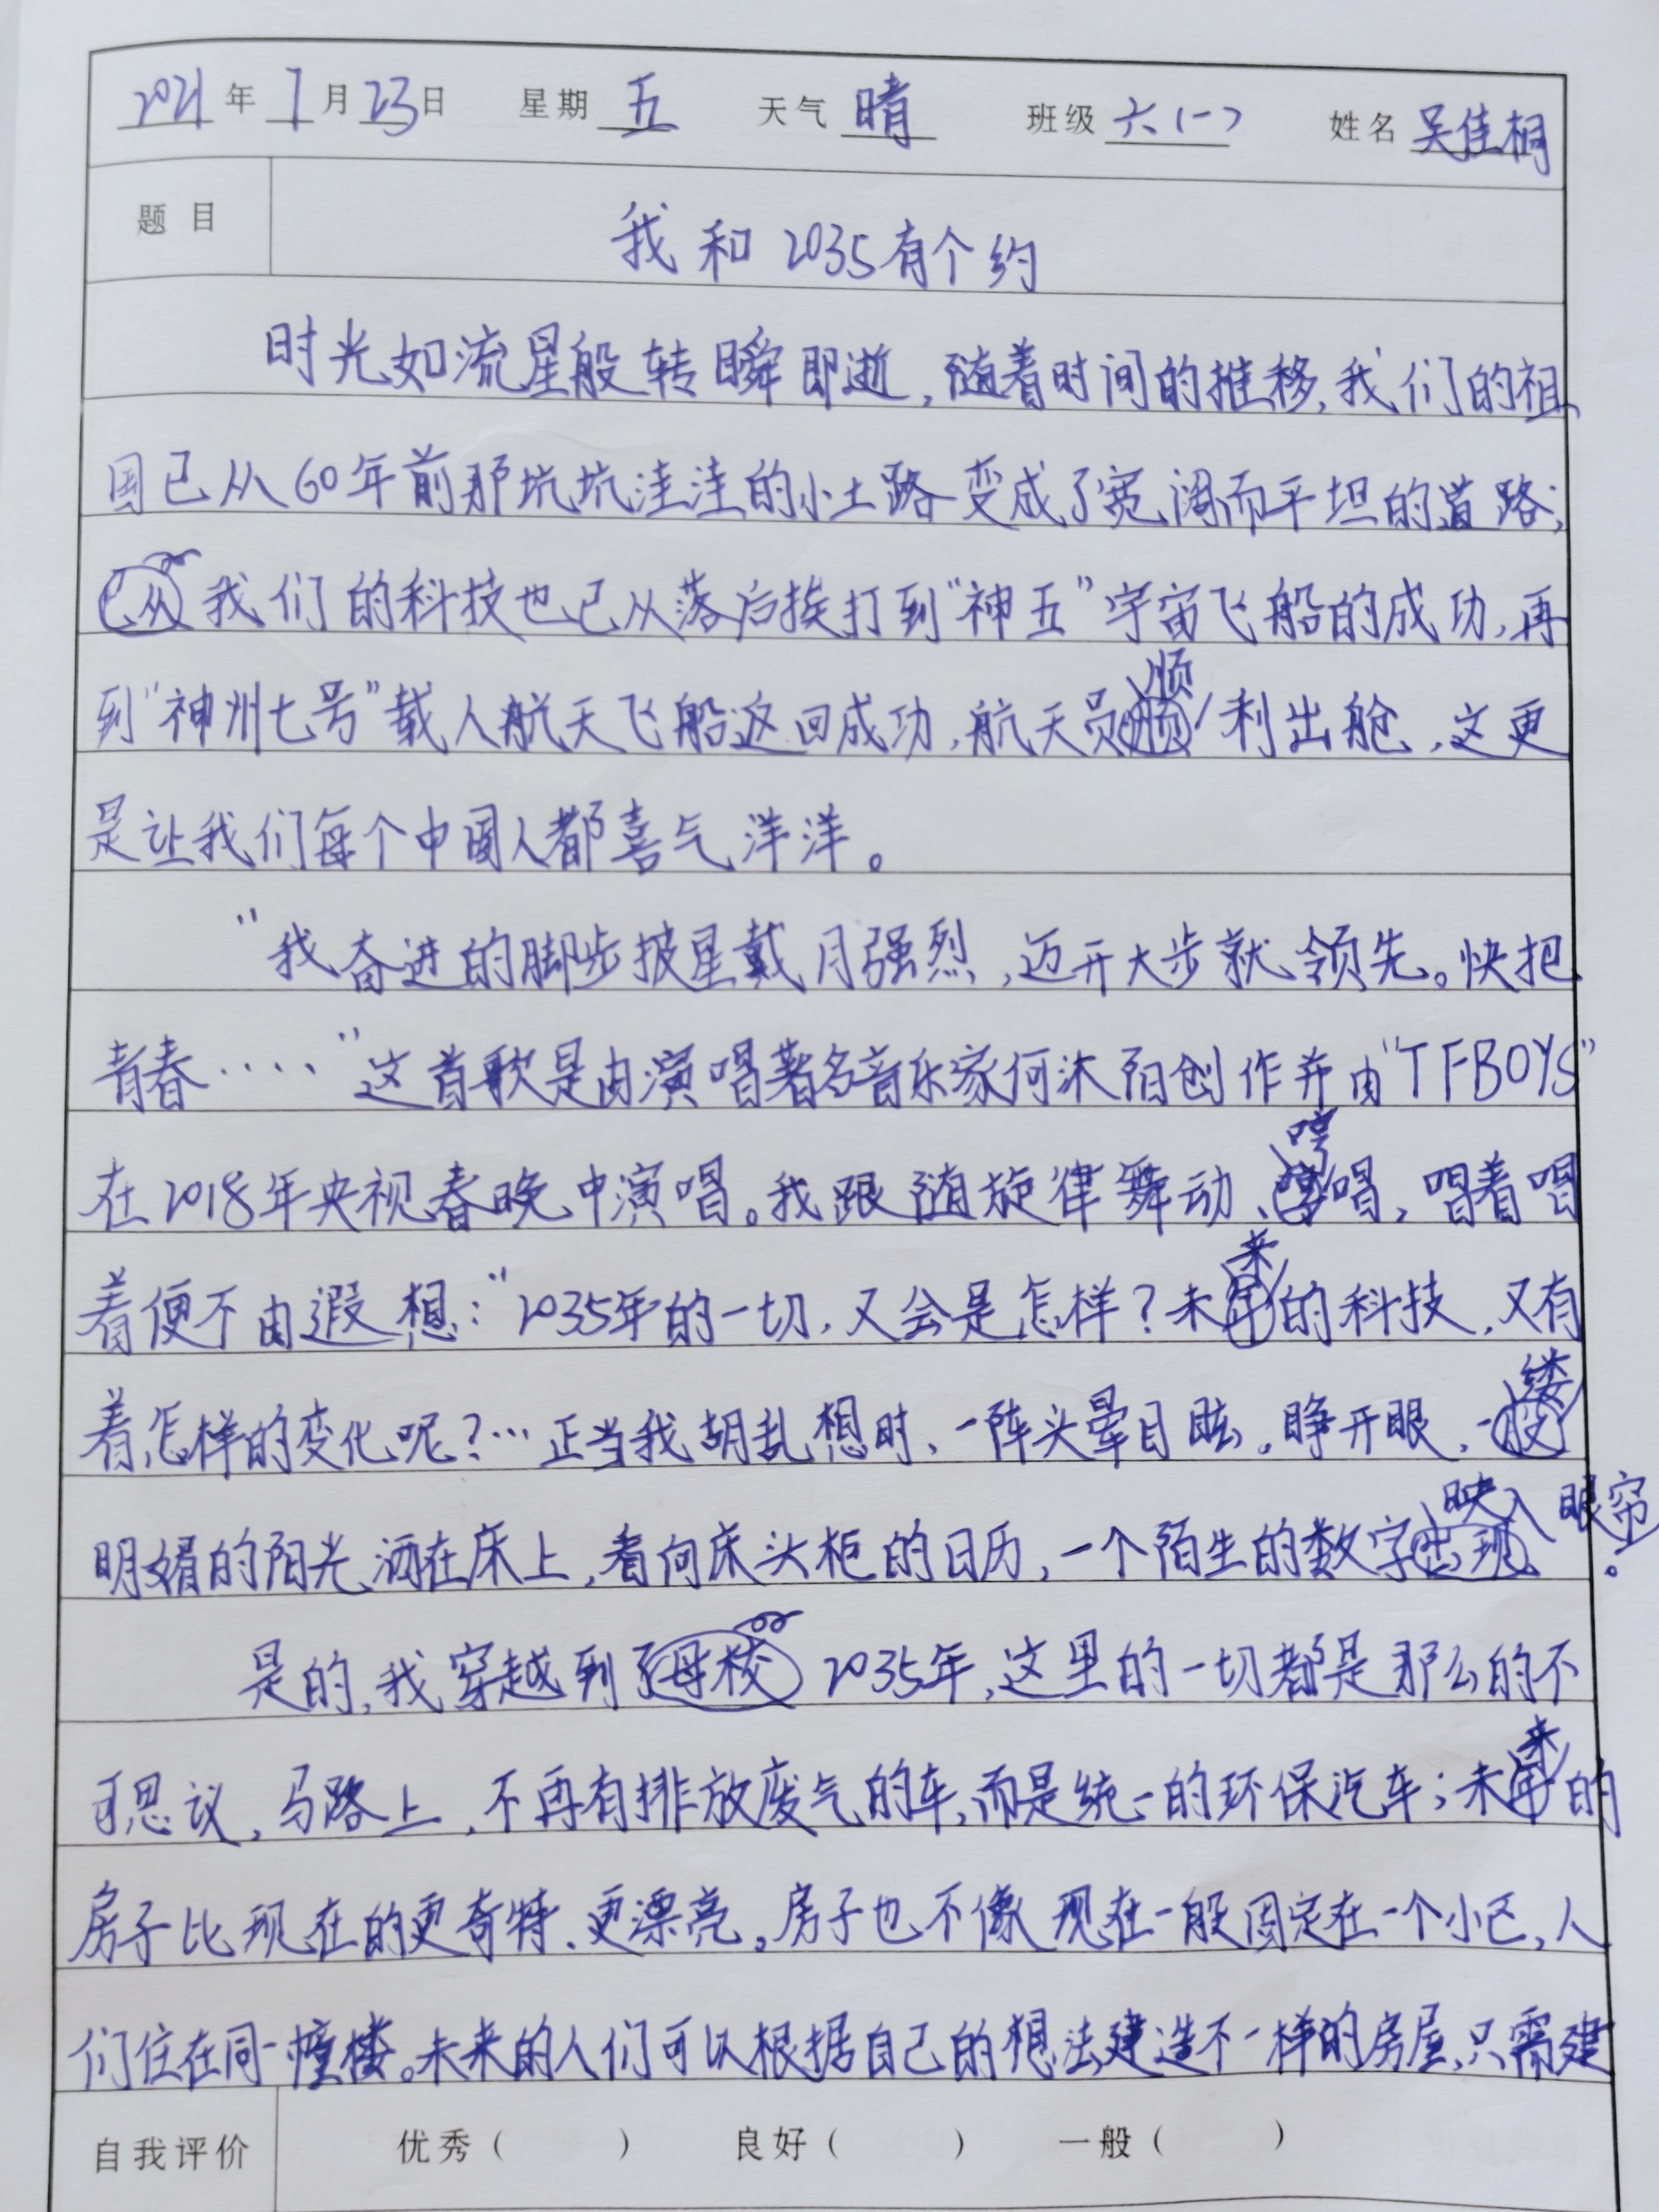 2021年1月23日 星期五 天气晴 班级六(一) 姓名吴佳桐
题目 我和2035有个约
时光如流星般转瞬即逝,随着时间的推移,我们的祖
国已从60年前那坑坑洼洼的小土路变成了宽阔而平坦的道路;
已从我们的科技也已从落后挨打到"神五"宇宙飞船的成功,再
到"神州七号"载人航天飞船返回成功,航天员顺利出舱,这更
是让我们每个中国人都喜气洋洋。
"我奋进的脚步披星戴月强烈,迈开大步就领先。快把
青春····"这首歌是由演唱著名音乐家何沐阳创作并由"TFBOYS"
在2018年央视春晚中演唱。我跟随旋律舞动、哼唱,唱着唱
着便不由遐想:"2035年的一切,又会是怎样?未来的科技,又有
着怎样的变化呢?…正当我胡乱想时、一阵头晕目眩。睁开眼,一缕
明媚的阳光洒在床上,看向床头柜的日历,一个陌生的数字映入眼帘。
是的,我穿越到了母校2035年,这里的一切都是那么的不
可思议,马路上,不再有排放废气的车,而是统一的环保汽车;未来的
房子比现在的更奇特、更漂亮。房子也不像现在一般固定在一个小区,人
们住在同一幢楼。未来的人们可以根据自己的想法建造不一样的房屋,只需建
自我评价 优秀( ) 良好( ) 一般( )